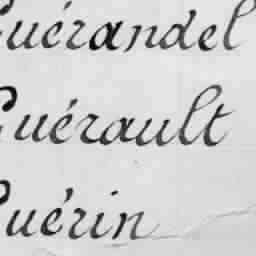 Guérandel
Guérault
Guérin